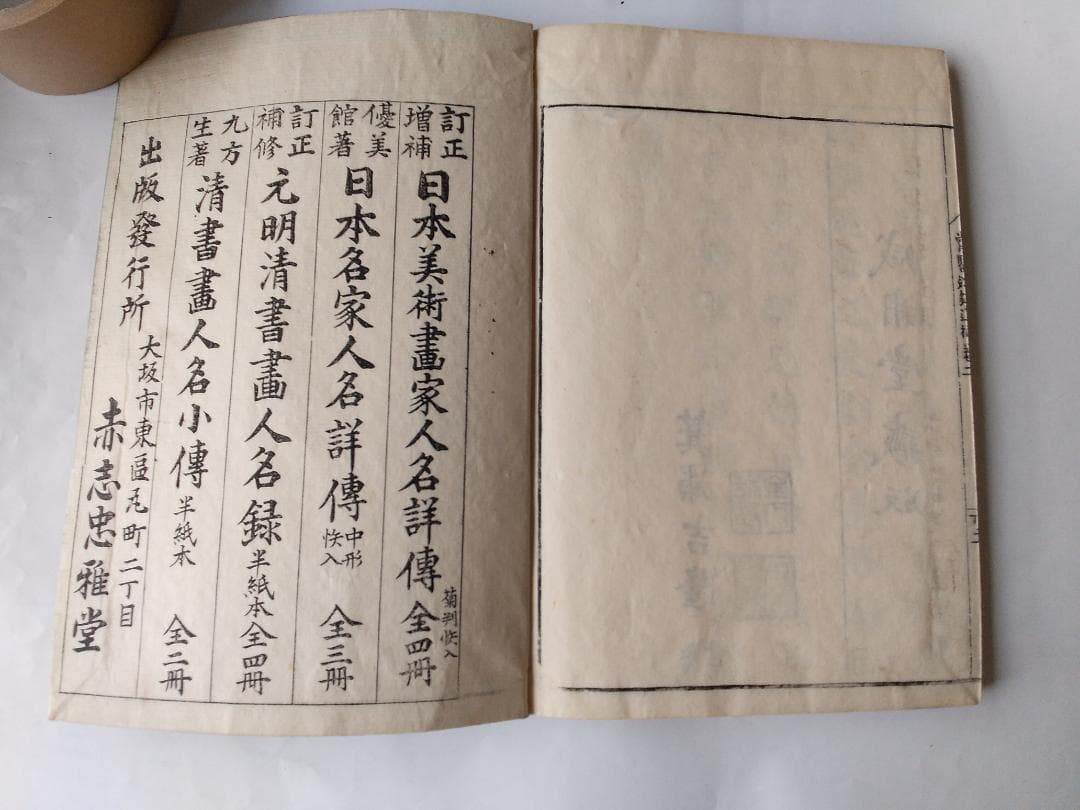 訂正增補 日本美術畫家人名詳傳 菊判帙入 全四冊
優美館著 日本名家人名詳傳 中形帙入 全三冊
訂正補修 元明清書畫人名録 半紙本 全四冊
九方生著 清書畫人名小傳 半紙本 全二冊
出版發行所 大坂市東區瓦町二丁目 赤志忠雅堂